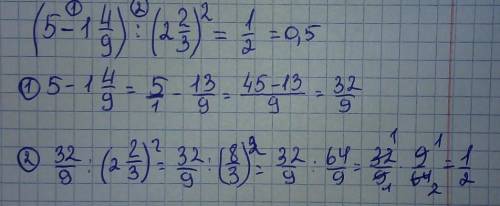 ① ②
(5 - 1 4/9) : (2 2/3)² = 1/2 = 0,5
① 5 - 1 4/9 = 5/1 - 13/9 = (45-13)/9 = 32/9
② 32/9 : (2 2/3)² = 32/9 : (8/3)² = 32/9 : 64/9 = 32/9 · 9/64 = 1/2
1 1
1 2